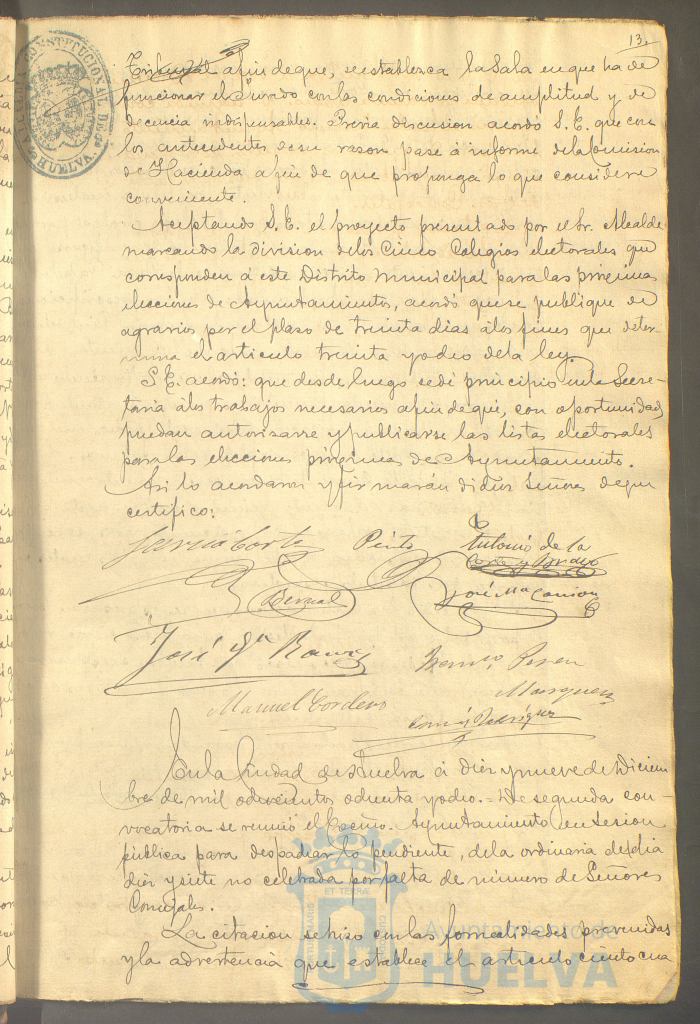 13.
ALCALDIA CONSTITUCIONAL DE HUELVA.
Tribunal afin de que, se establezca la Sala en que ha de
funcionar el Jurado con las condiciones de amplitud y de
decencia indispensables. Previa discusion acordó S. E. que con
los antecedentes de su razon pase á informe de la Comision
de Hacienda afin de que proponga lo que considere
conveniente.
Aceptando S. E. el proyecto presentado por el Sr. Alcalde
marcando la division de los Cinco Colegios electorales que
corresponden á este Distrito municipal para las proximas
elecciones de Ayuntamientos, acordó que se publique de
agrarios por el plazo de treinta dias á los fines que deter-
mina el articulo treinta y ocho de la ley.
S. E. acordó: que desde luego se dé principio en la Secre-
taria á los trabajos necesarios afin de que, con oportunidad,
puedan autorizarse y publicarse las listas electorales
para las elecciones proximas de Ayuntamiento.
Asi lo acordaron y firmarán dichos Señores de que
certifico:
Garcia Corte Pinto Antonio de la
Corte y
Bernal José Mª
José Gª
Perez
Manuel Cordero Marquez
Rodriguez
En la Ciudad de Huelva á diez y nueve de Diciem
bre de mil ochocientos ochenta y ocho. = De segunda con-
vocatoria se reunió el Excmo. Ayuntamiento en Sesion
pública para despachar lo pendiente, de la ordinaria del dia
diez y siete no celebrada por falta de número de Señores
Concejales.
La citacion se hizo con las formalidades prevenidas
y la advertencia que establece el articulo ciento cua
Ayuntamiento de
HUELVA